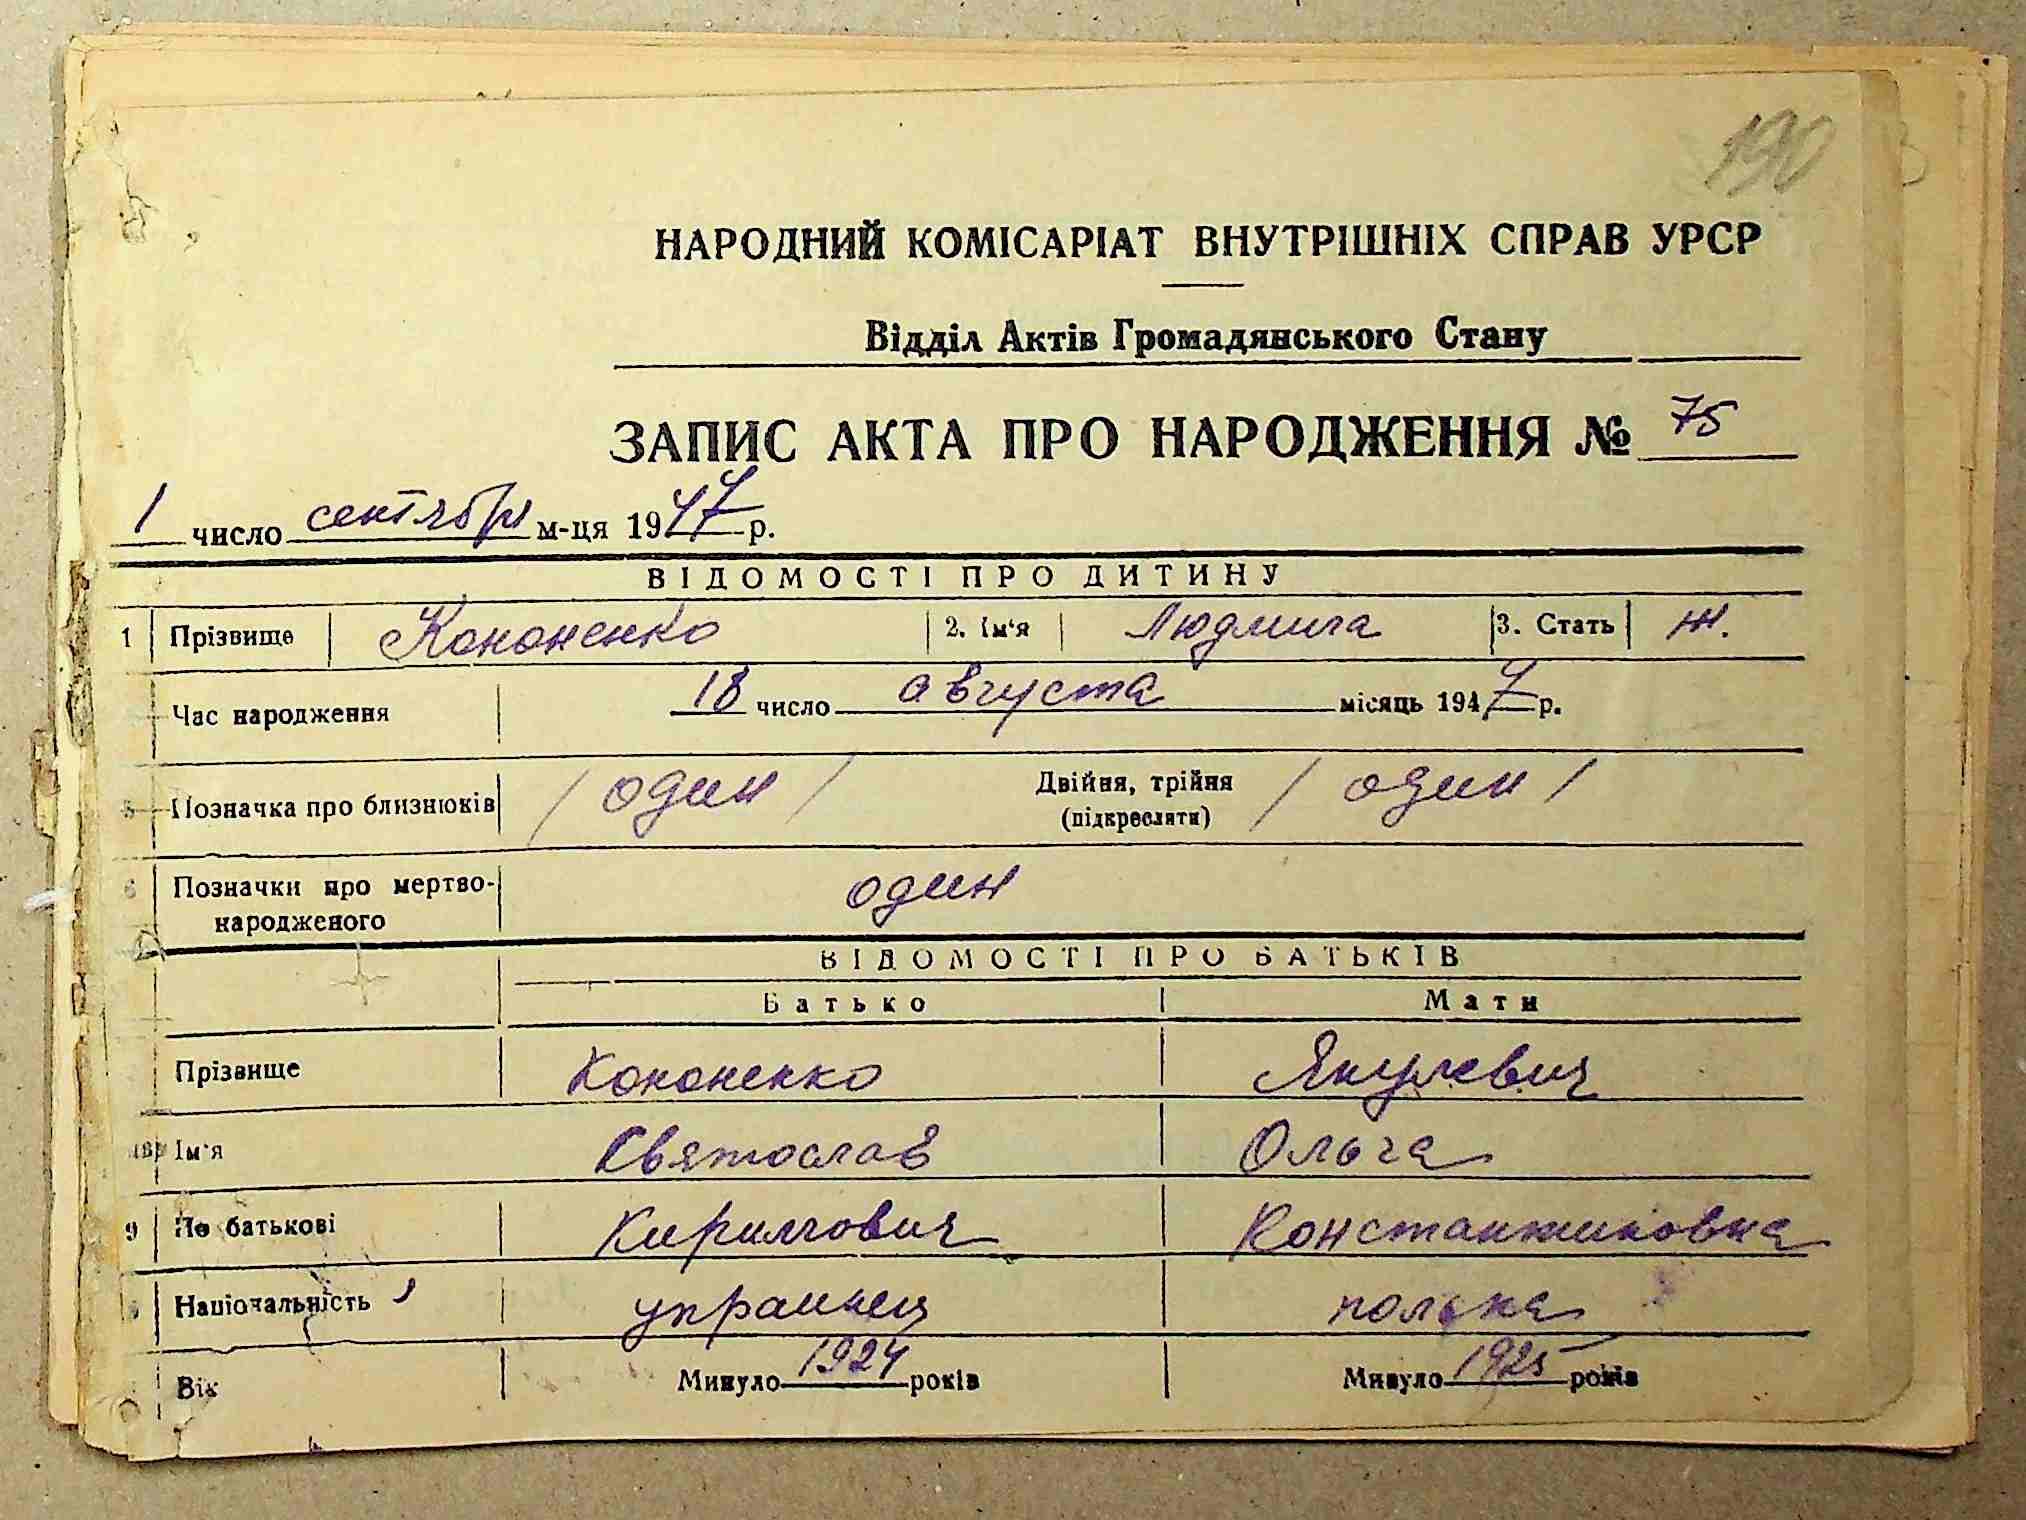 190
НАРОДНИЙ КОМІСАРІАТ ВНУТРІШНІХ СПРАВ УРСР
Відділ Актів Громадянського Стану
ЗАПИС АКТА ПРО НАРОДЖЕННЯ № 75
1 число сентября м-ця 1947 р.
ВІДОМОСТІ ПРО ДИТИНУ
1 Прізвище Кононенко 2. Ім'я Людмила 3. Стать ж.
Час народження 18 число августа місяць 1947 р.
5 Позначка про близнюків / один / Двійня, трійня / один /
(підкреслити)
6 Позначки про мертво- один
народженого
ВІДОМОСТІ ПРО БАТЬКІВ
Батько Мати
Прізвище Кононенко Янулевич
Ім'я Святослав Ольга
9 По батькові Кириллович Константиновна
Національність украинец полька
Вік Минуло 1924 років Минуло 1925 років